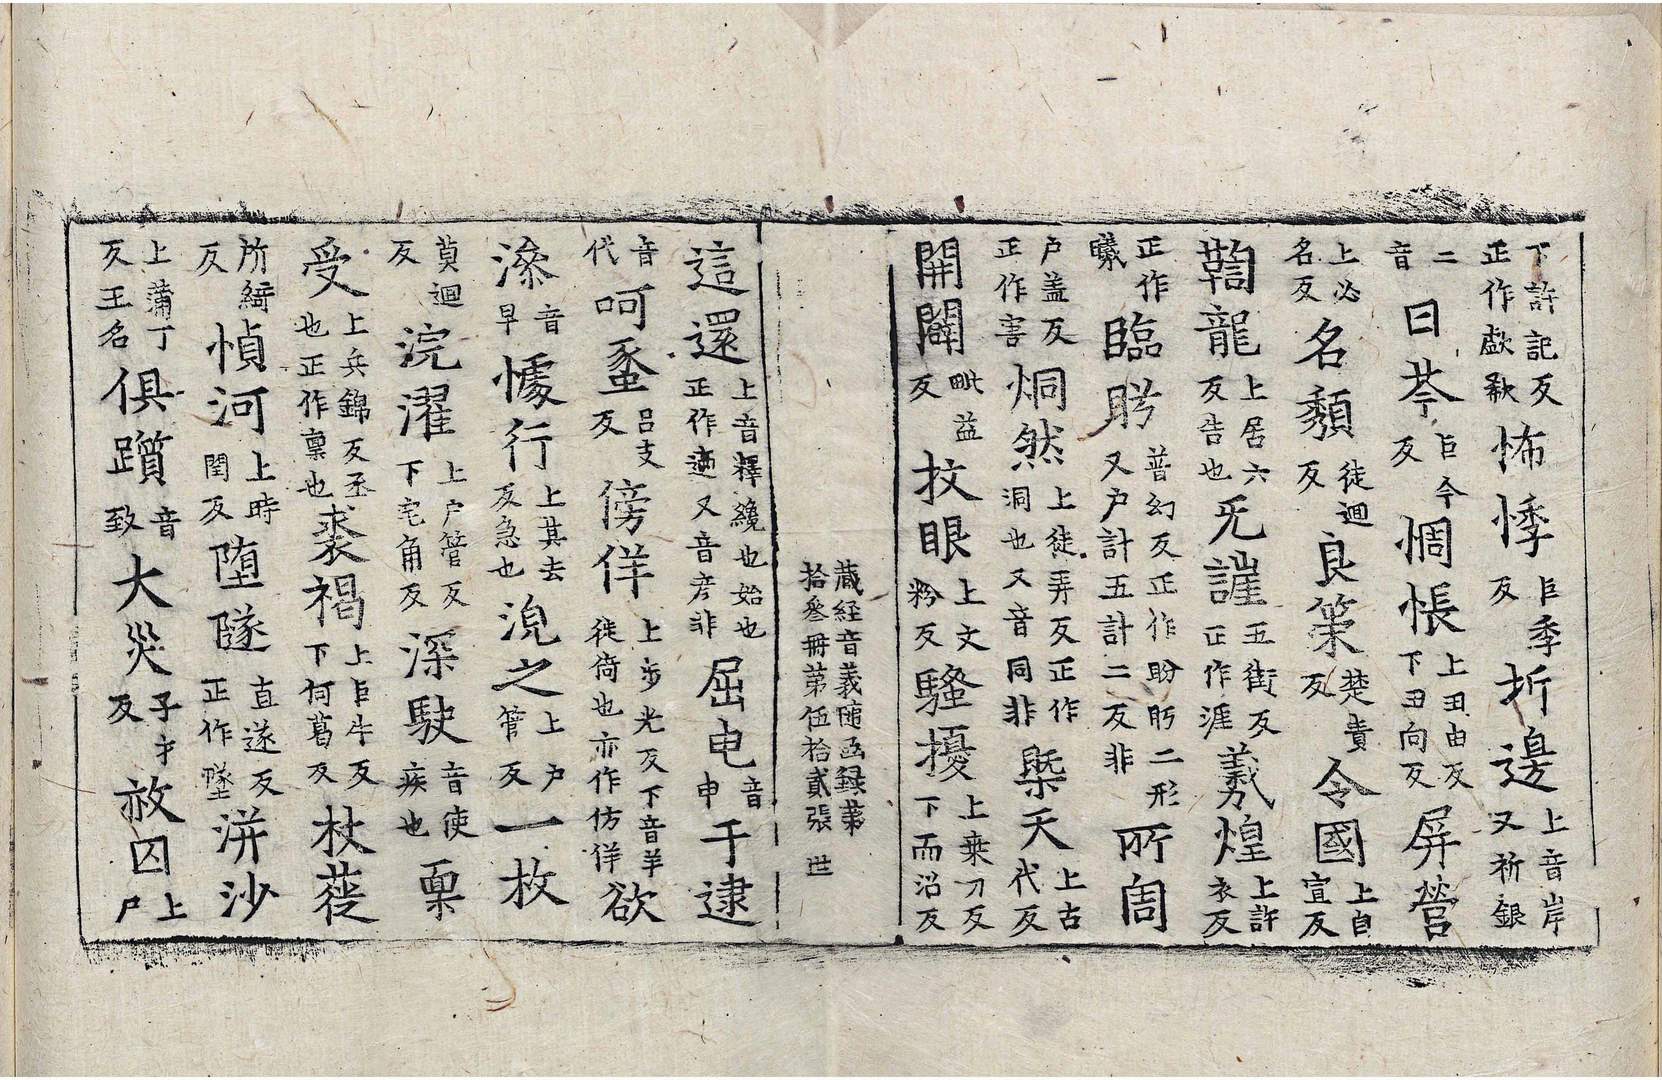 下許記反正作歔欷怖悸巨季反圻邊上音岸又祈銀
二音曰芩巨今反惆悵上丑由反下丑向反屏營
上必名反名頹徒迴反良策楚責反令國上自宣反
鞫龍上居六反告也旡謹五街反正作涯羲煌上許衣反
正作曦臨盻普幻反正作盼盻二形又户計五計二反非所周
户盖反正作害炯然上徒弄反正作洞也又音同非槩天上古代反
開闢毗益反抆眼上文粉反騷擾上桒刀反下而沼反
藏經音義随函録第
拾叁冊第伍拾貳張 世
這還上音釋纔也始也正作適又音彦非屈电音申于逮
音代呵蚉吕支反傍佯上步光反下音羊徙倚也亦作仿佯欲
澡音早懅行上其去反急也浣之上户管反一枚
莫迴反浣濯上户管反下宅角反深駛音使疾也稟
受上兵錦反丞也正作稟也裘褐上巨牛反下何葛反杖蓰
所綺反河上時閏反墮隧直遂反正作墜洴沙
上蒲丁反王名俱躓音致大災子才反放囚上尸